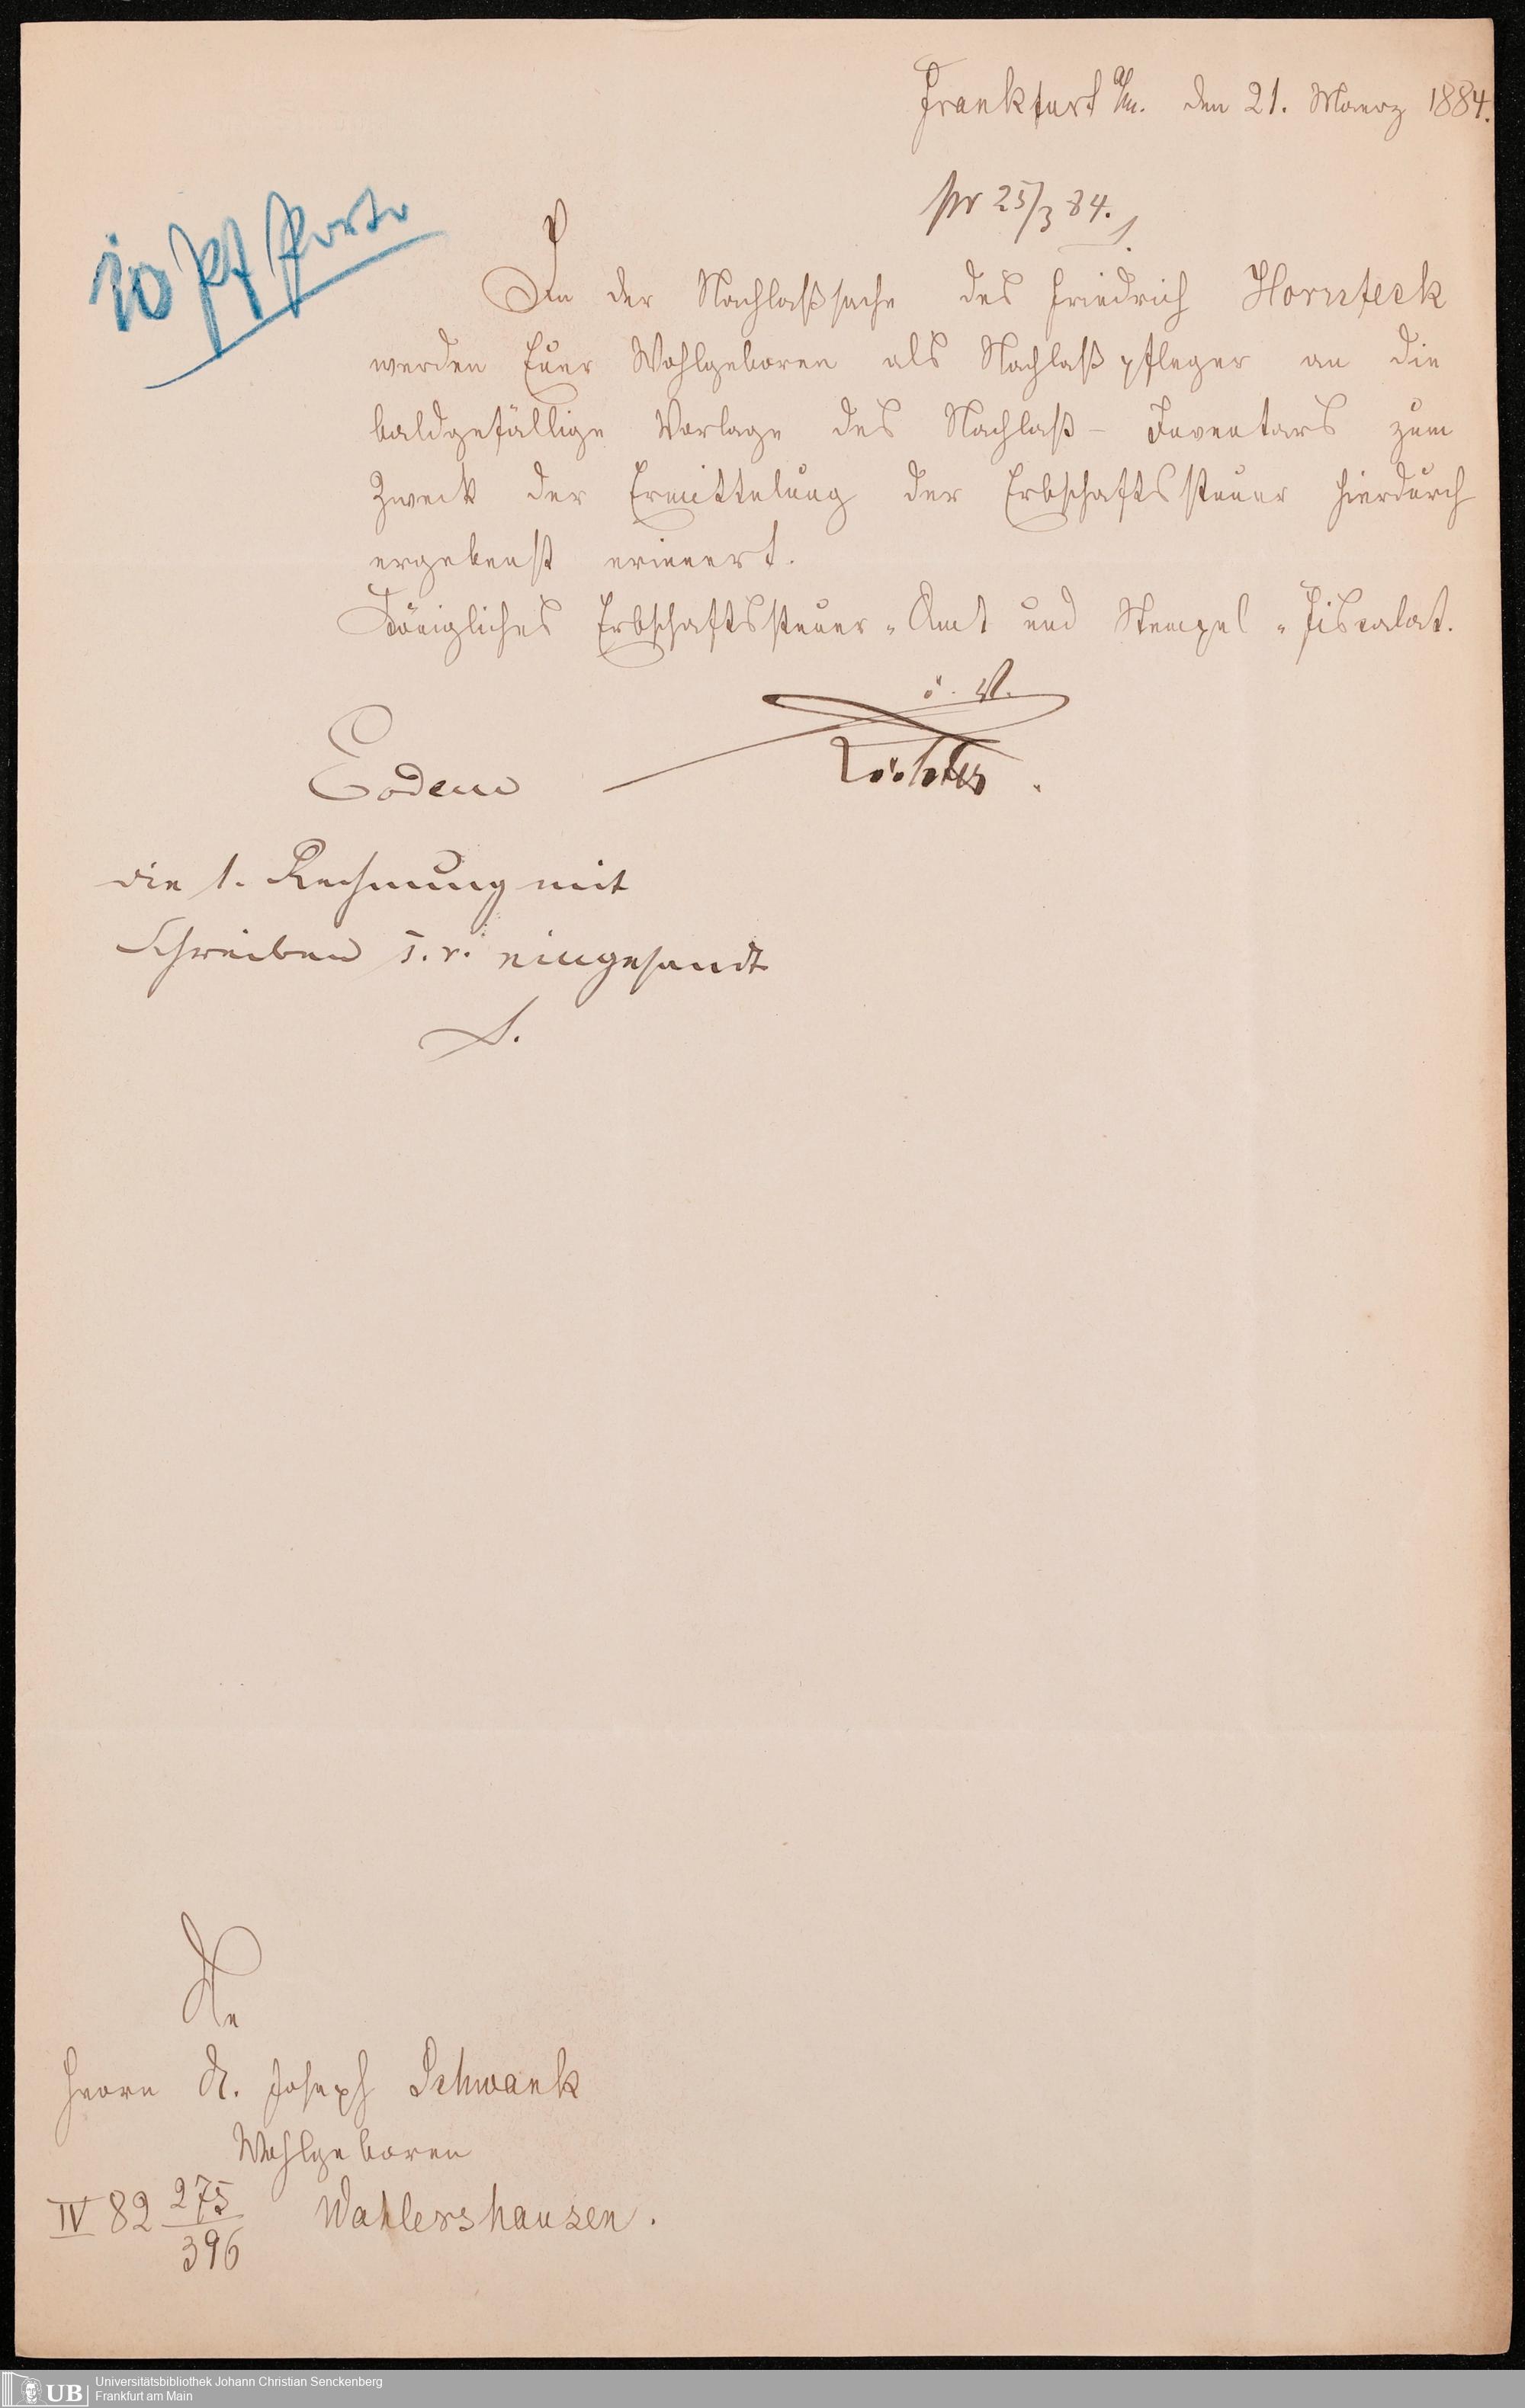 Frankfurt a/M. den 21. Maerz 1884.
pr 25/3 84.
10 Pf Porto
In der Nachlaßsache des Friedrich Hornfeck
werden Euer Wohlgeboren als Nachlaßpfleger an die
baldgefällige Vorlage des Nachlaß-Inventars zum
Zweck der Ermittelung der Erbschaftssteuer hierdurch
ergebenst erinnert.
Königliches Erbschaftssteuer-Amt und Stempel-Fiscalat.
Eodem
die 1. Rechnung mit
Schreiben eingesandt
S.
An
Herrn Dr. Joseph Schwank
Wohlgeboren
IV 82 275/396 Wahlershausen.
Universitätsbibliothek Johann Christian Senckenberg
UB Frankfurt am Main